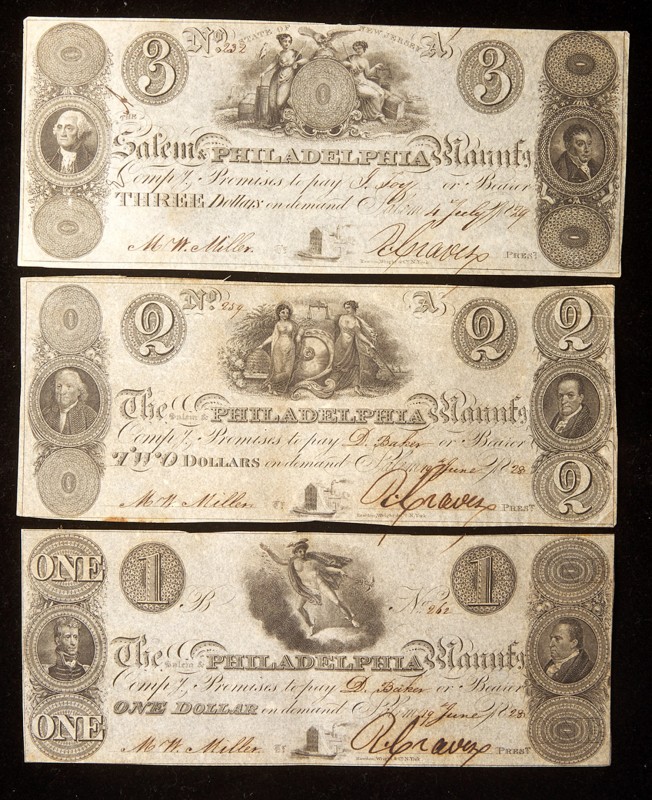 No. 232 STATE OF NEW JERSEY A
3 3
THE
Salem & PHILADELPHIA Manufg
Compy. Promises to pay J. Toy or Bearer
THREE Dollars on demand Salem 4 July 1829
M W. Miller R. Craven PREST.
No. 259 A
2 2 2
The Salem & PHILADELPHIA Manufg
Compy. Promises to pay D. Baker or Bearer
TWO DOLLARS on demand Salem 19 June 1828
M W. Miller R. Craven PREST.
2
ONE 1 1
B No. 262
The Salem & PHILADELPHIA Manufg
Compy. Promises to pay D. Baker or Bearer
ONE DOLLAR on demand Salem 19 June 1828
ONE
M W. Miller R. Craven PREST.